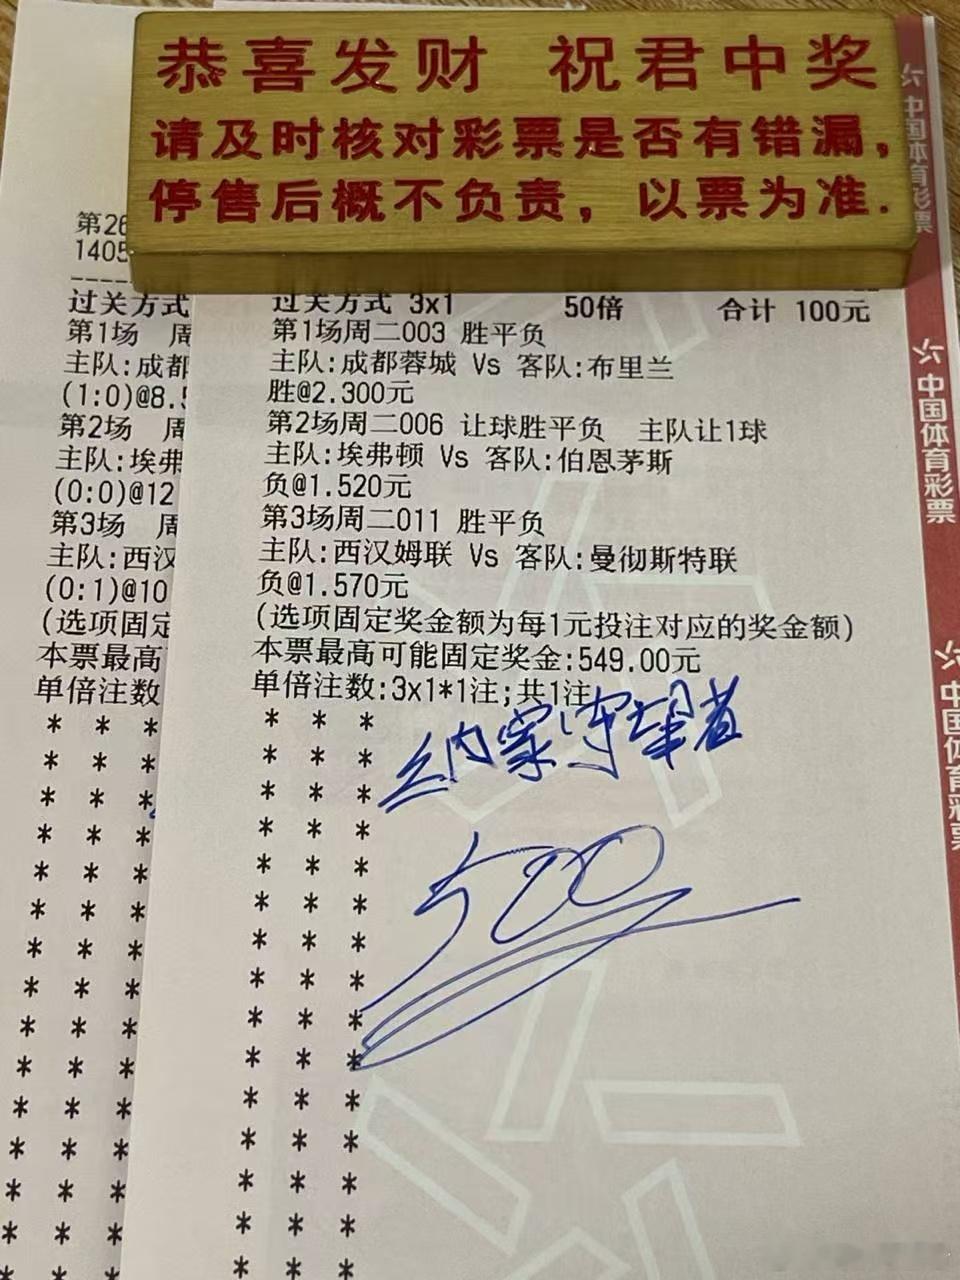 恭喜发财 祝君中奖
请及时核对彩票是否有错漏，
停售后概不负责，以票为准.
第26
1405
过关方式
第1场 周
主队:成都
(1:0)@8.5
第2场 周
主队:埃弗
(0:0)@12
第3场 周
主队:西汉
(0:1)@10
(选项固定
本票最高可
单倍注数
过关方式 3x1 50倍 合计 100元
第1场周二003 胜平负
主队:成都蓉城 Vs 客队:布里兰
胜@2.300元
第2场周二006 让球胜平负 主队让1球
主队:埃弗顿 Vs 客队:伯恩茅斯
负@1.520元
第3场周二011 胜平负
主队:西汉姆联 Vs 客队:曼彻斯特联
负@1.570元
(选项固定奖金额为每1元投注对应的奖金额)
本票最高可能固定奖金:549.00元
单倍注数:3x1*1注;共1注
内蒙守望者
500
中国体育彩票
中国体育彩票
中国体育彩票